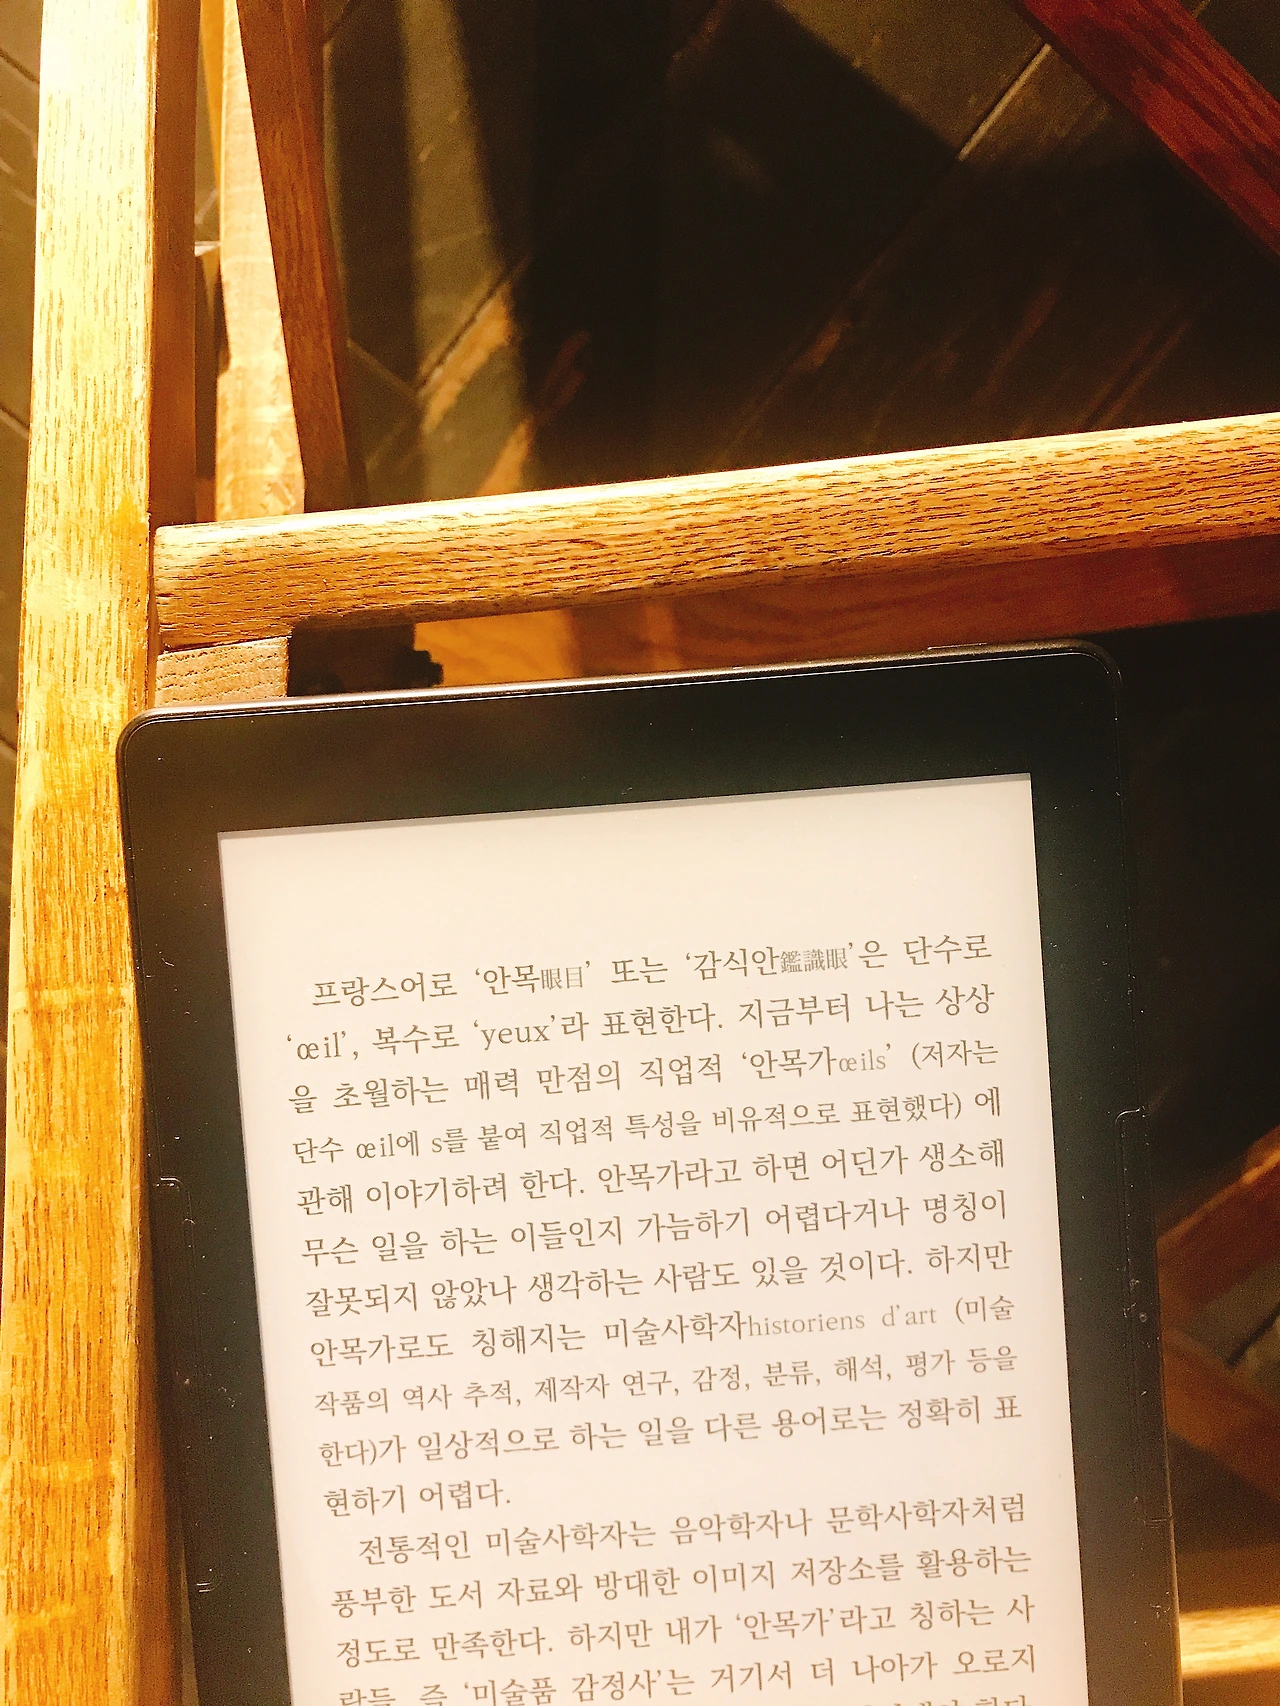 프랑스어로 ‘안목眼目’ 또는 ‘감식안鑑識眼’은 단수로
‘œil’, 복수로 ‘yeux’라 표현한다. 지금부터 나는 상상
을 초월하는 매력 만점의 직업적 ‘안목가œils’ (저자는
단수 œil에 s를 붙여 직업적 특성을 비유적으로 표현했다) 에
관해 이야기하려 한다. 안목가라고 하면 어딘가 생소해
무슨 일을 하는 이들인지 가늠하기 어렵다거나 명칭이
잘못되지 않았나 생각하는 사람도 있을 것이다. 하지만
안목가로도 칭해지는 미술사학자historiens d’art (미술
작품의 역사 추적, 제작자 연구, 감정, 분류, 해석, 평가 등을
한다)가 일상적으로 하는 일을 다른 용어로는 정확히 표
현하기 어렵다.
전통적인 미술사학자는 음악학자나 문학사학자처럼
풍부한 도서 자료와 방대한 이미지 저장소를 활용하는
정도로 만족한다. 하지만 내가 ‘안목가’라고 칭하는 사
람들, 즉 ‘미술품 감정사’는 거기서 더 나아가 오로지